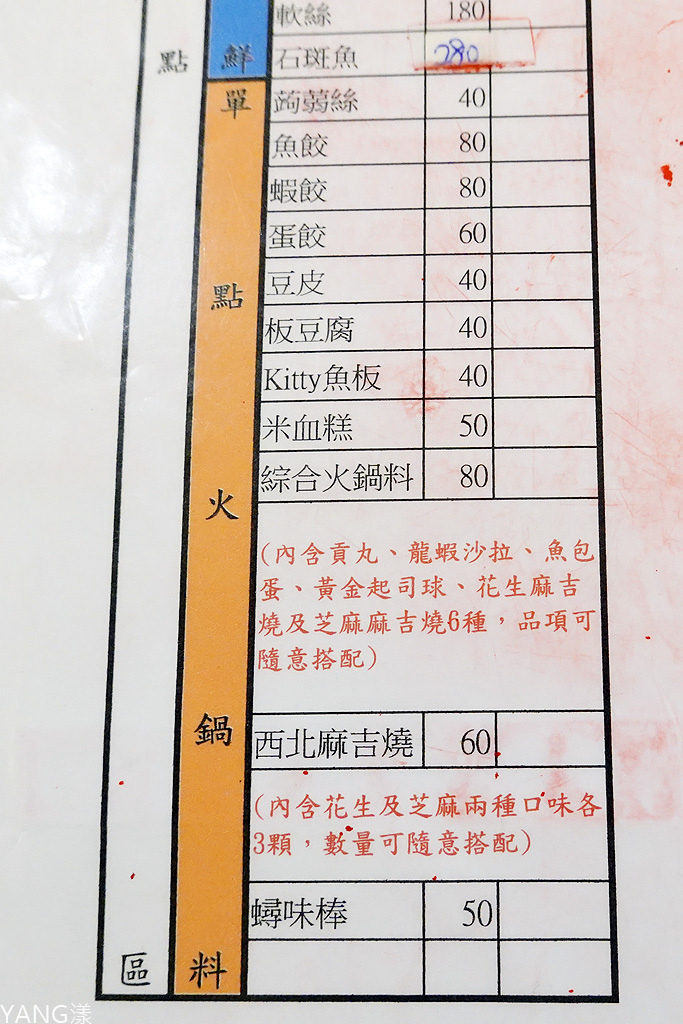 軟絲 180
石斑魚 280
蒟蒻絲 40
魚餃 80
蝦餃 80
蛋餃 60
豆皮 40
板豆腐 40
Kitty魚板 40
米血糕 50
綜合火鍋料 80
(內含貢丸、龍蝦沙拉、魚包
蛋、黃金起司球、花生麻吉
燒及芝麻麻吉燒6種，品項可
隨意搭配)
西北麻吉燒 60
(內含花生及芝麻兩種口味各
3顆，數量可隨意搭配)
蟳味棒 50
點
區
鮮
單
點
火
鍋
料
YANG漾